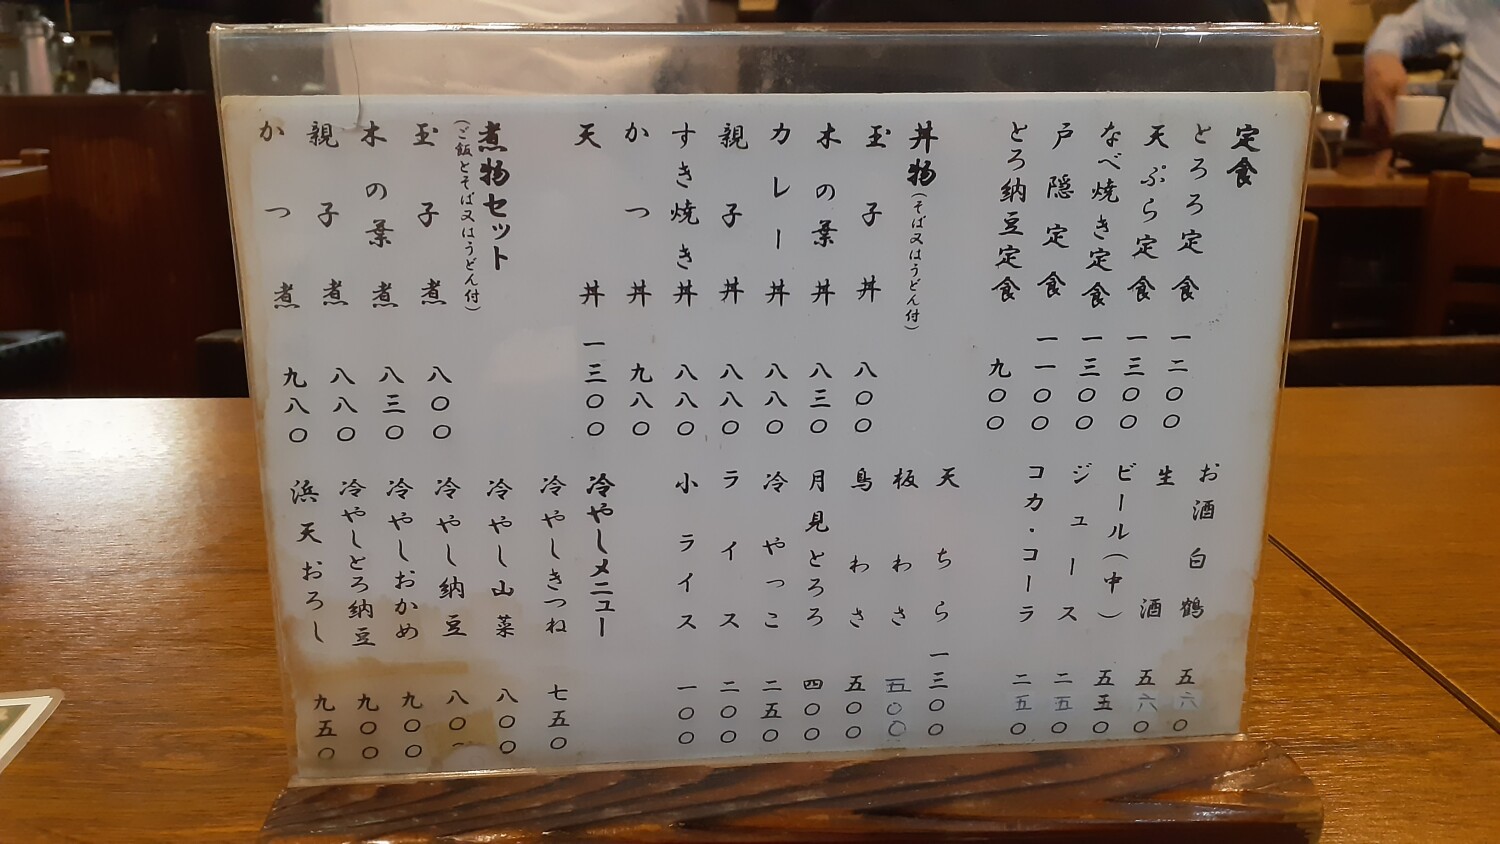 定食
とろろ定食 一二〇〇
天ぷら定食 一三〇〇
なべ焼き定食 一三〇〇
戸隠定食 一一〇〇
とろ納豆定食 九〇〇
丼物(そば又はうどん付)
玉子丼 八〇〇
木の葉丼 八三〇
カレー丼 八八〇
親子丼 八八〇
すき焼き丼 八八〇
かつ丼 九八〇
天丼 一三〇〇
煮物セット
(ご飯とそば又はうどん付)
玉子煮 八〇〇
木の葉煮 八三〇
親子煮 八八〇
かつ煮 九八〇
お酒白鶴 五六〇
生酒 五六〇
ビール(中) 五五〇
ジュース 二五〇
コカ・コーラ 二五〇
天ちら 一三〇〇
板わさ 五〇〇
鳥わさ 五〇〇
月見とろろ 四〇〇
冷やっこ 二五〇
ライス 二〇〇
小ライス 一〇〇
冷やしメニュー
冷やしきつね 七五〇
冷やし山菜 八〇〇
冷やし納豆 八〇
冷やしおかめ 九〇〇
冷やしとろ納豆 九〇〇
浜天おろし 九五〇